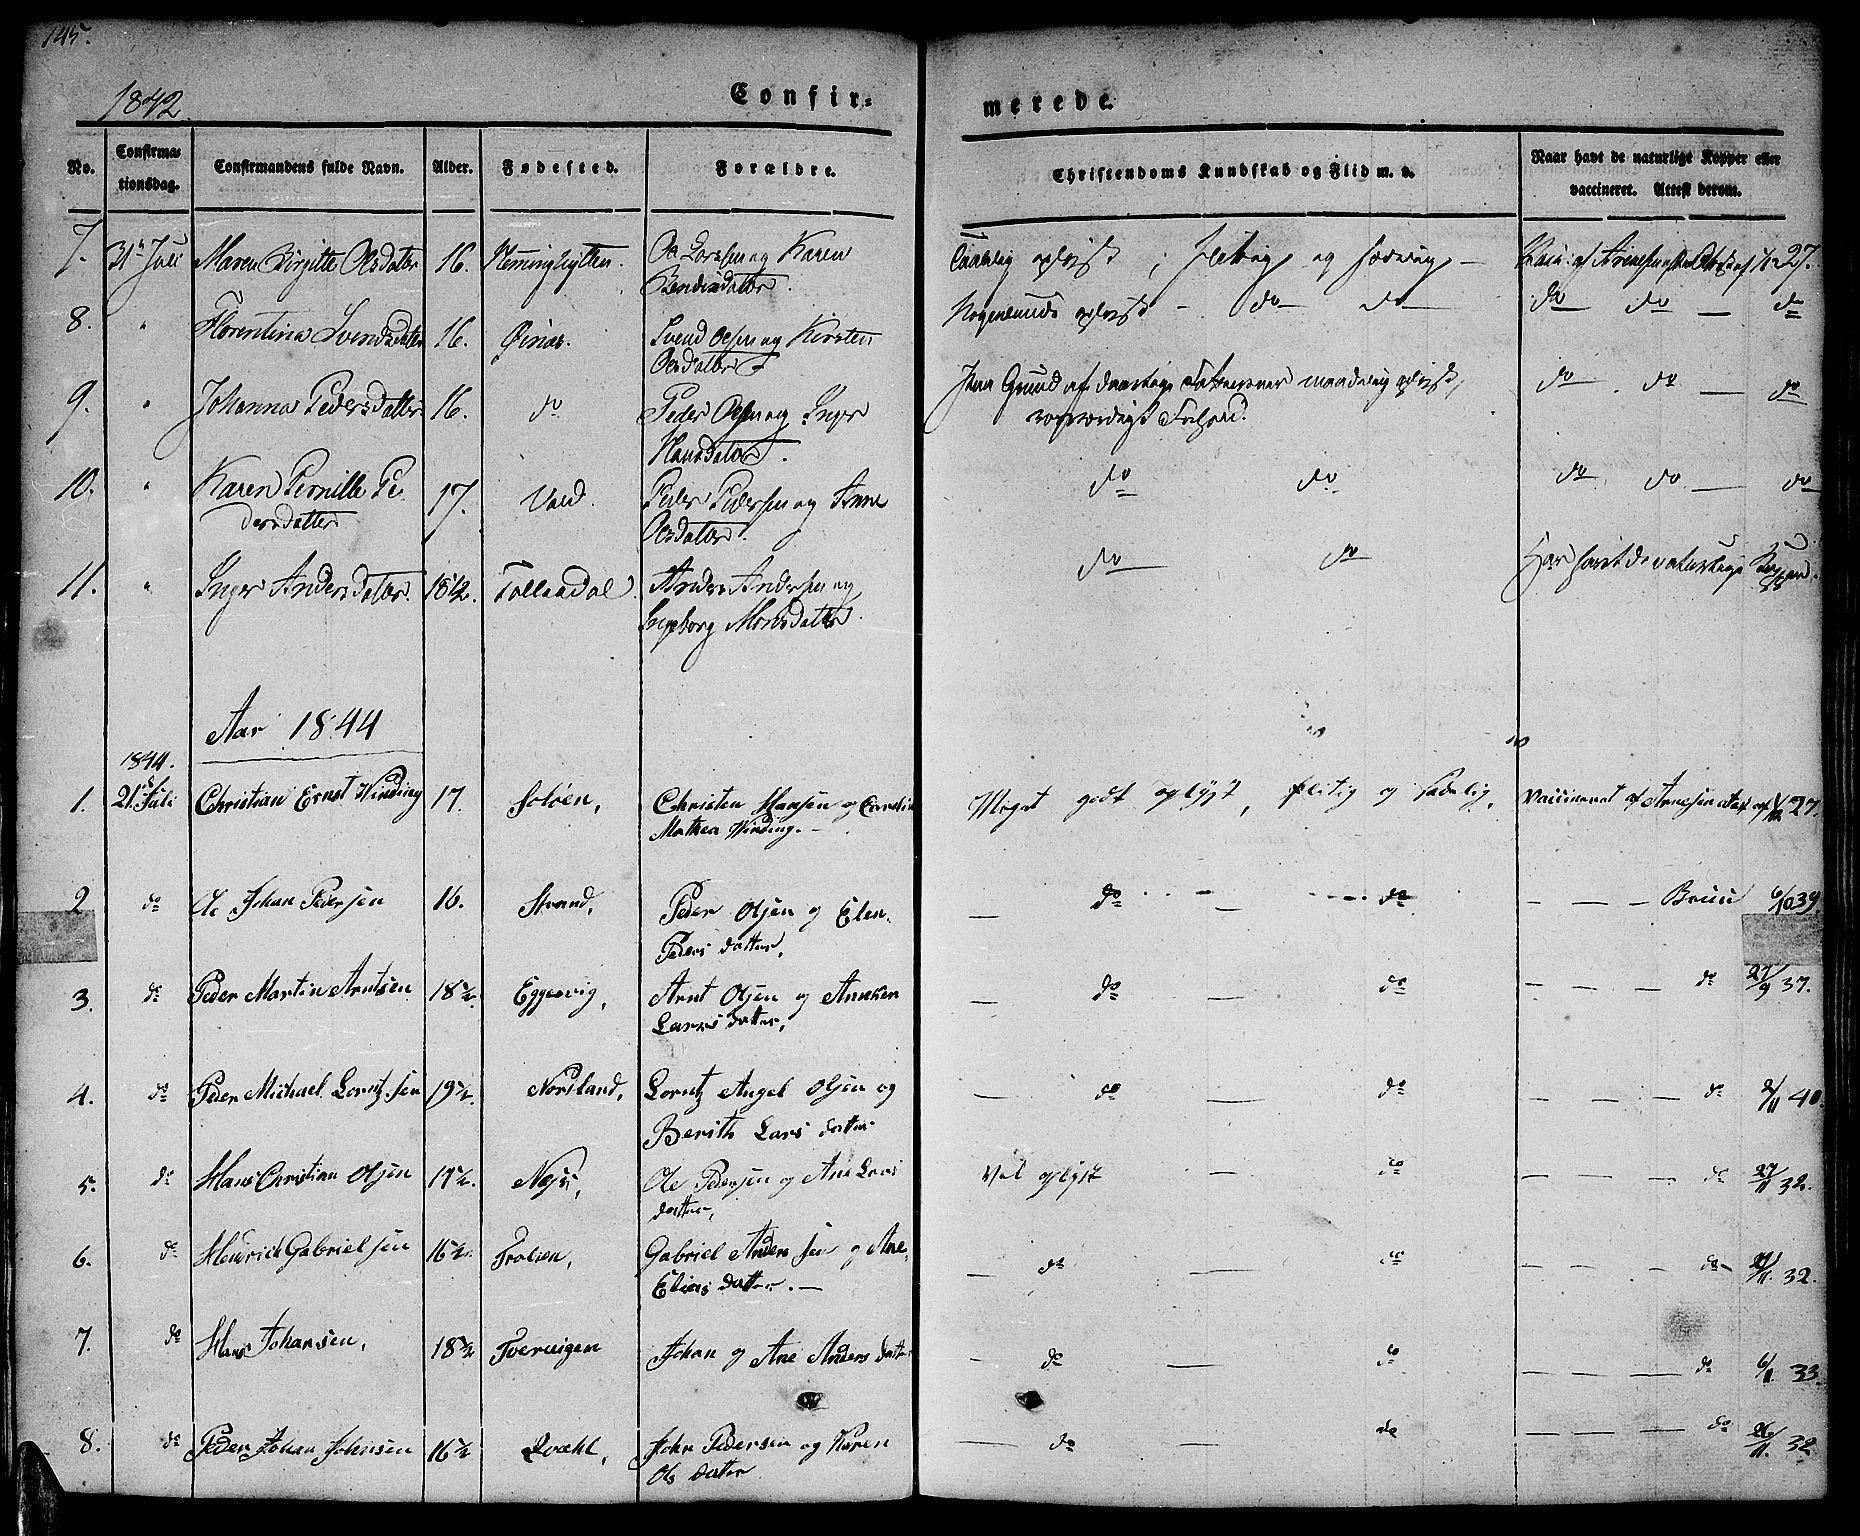 145.
1842.
Confir-
merede.
No. Confirma-tionsdag. Confirmandens fulde Navn. Alder. Fødested. Forældre. Christendoms Kundskab og Flid m. v. Naar havt de naturlige Kopper eller vaccineret. Attest derom.
7. 31 Juli Maren Birgitte Olsdatter 16. Ole Larsen og Karen
Bendixdatter.
oplyst, flittig og sædelig — 27.
8. " Florentina Svendsdatter 16. Øinæs. Svend Olsen og Kirsten
Olsdatter
Nogenlunde oplyst — do — do — do do — do
9. " Johanna Pedersdatter 16. do Peder Olsen og Inger
Hansdatter.
Paa Grund af maadelig oplyst,
Forhold.
do do — do
10. " Karen Pernille Pe-
dersdatter 17. Vold. Peder Pedersen og Anne
Olsdatter.
do do do do — do
11. " Inger Andersdatter. 18 1/2. Tollaadal. Anders Andersen og
Ingeborg Monsdatter.
do do Har havt de naturlige Kopper.
Aar 1844
1844.
1. 21 Juli Christian Ernst Winding 17. Soløen, Christen Hansen og
Mathea Winding. —
Meget godt oplyst, flittig og sædelig. Vaccineret af Arnesen 27.
2. do Ole Johan Pedersen 16. Strand, Peder Olsen og Elen
Peders datter,
— do — do — — — Bruu 6/10 39.
3. do Peder Martin Arntsen 18 1/2. Eggesvig, Arnt Olsen og Anneken
Lars datter,
— do — do — — — do 27/9 37.
4. do Peder Michael Lorntz sen 19 1/2. Nordland, Lorntz Angel Olsen og
Berith Lars datter
— do — do — — — do 2/11 40.
5. do Hans Christian Olsen 17 1/2. Ole Pedersen og Ane Lars
datter,
Vel oplyst — do — — — do 27/11 32.
6. do Hendrick Gabrielsen 16 1/2. Troløen, Gabriel Andersen og Ane
Elias datter. —
— do — do — — — do — 27/11. 32.
7. do Hans Johansen, 18 1/2 Tverвigen Johan og Ane Anders datter
— do — do — — — do 6/11. 33.
8. do Peder Johan Johnsen 16 1/2 Qvæhl, John Pedersen og Karen
Ols datter
— do — do — — — do 26/11. 32